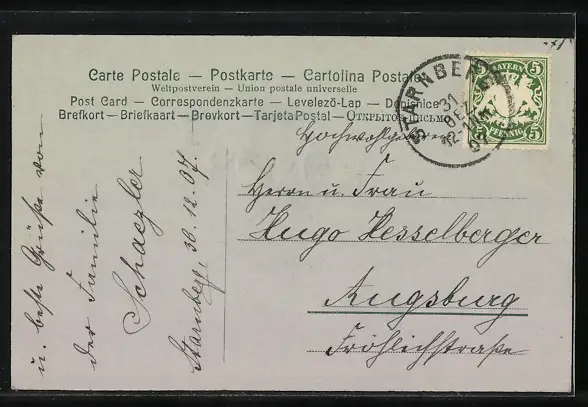 Carte Postale — Postkarte — Cartolina Postale
Weltpostverein — Union postale universelle
Post Card — Correspondenzkarte — Levelező-Lap — Dopisnice
Brefkort — Briefkaart — Brevkort — Tarjeta Postal — Открытое письмо
STARNBERG
31
DEZ.
12-1 NM
07
BAYERN
5 5
5 5
PFENNIG
Hochwohlgeboren
Herrn u. Frau
Hugo Hesselberger
Augsburg
Fröhlichstraße
u. beste Grüße von
der Familie
Schaezler
Starnberg, 30.12.07.